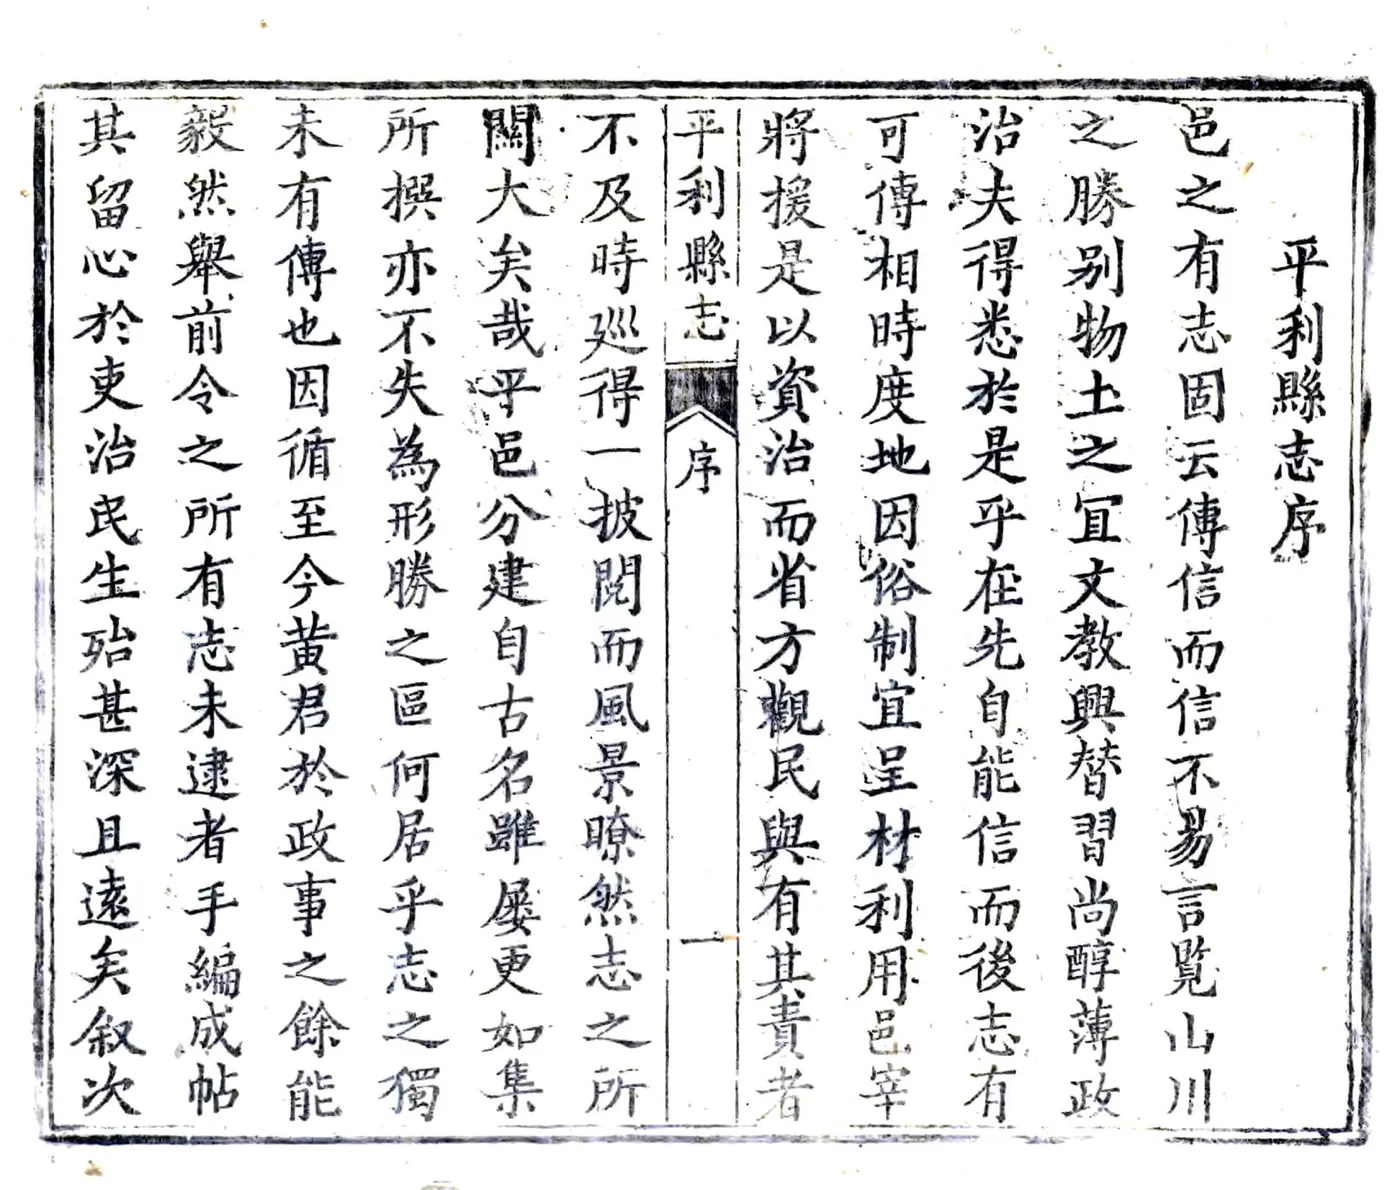 平利縣志序
邑之有志固云傳信而信不易言覧山川
之勝别物土之冝文教興替習尚醇薄政
治夫得悉於是乎在先自能信而後志有
可傳相時度地因俗制宜呈材利用邑宰
將援是以資治而省方觀民與有其責者
平利縣志 序 一
不及時巡得一披閱而風景暸然志之所
關大矣哉平邑分建自古名雖屡更如集
所撰亦不失為形勝之區何居乎志之獨
未有傳也因循至今黄君於政事之餘能
毅然舉前令之所有志未逮者手編成帖
其留心於吏治民生殆甚深且遠矣叙次